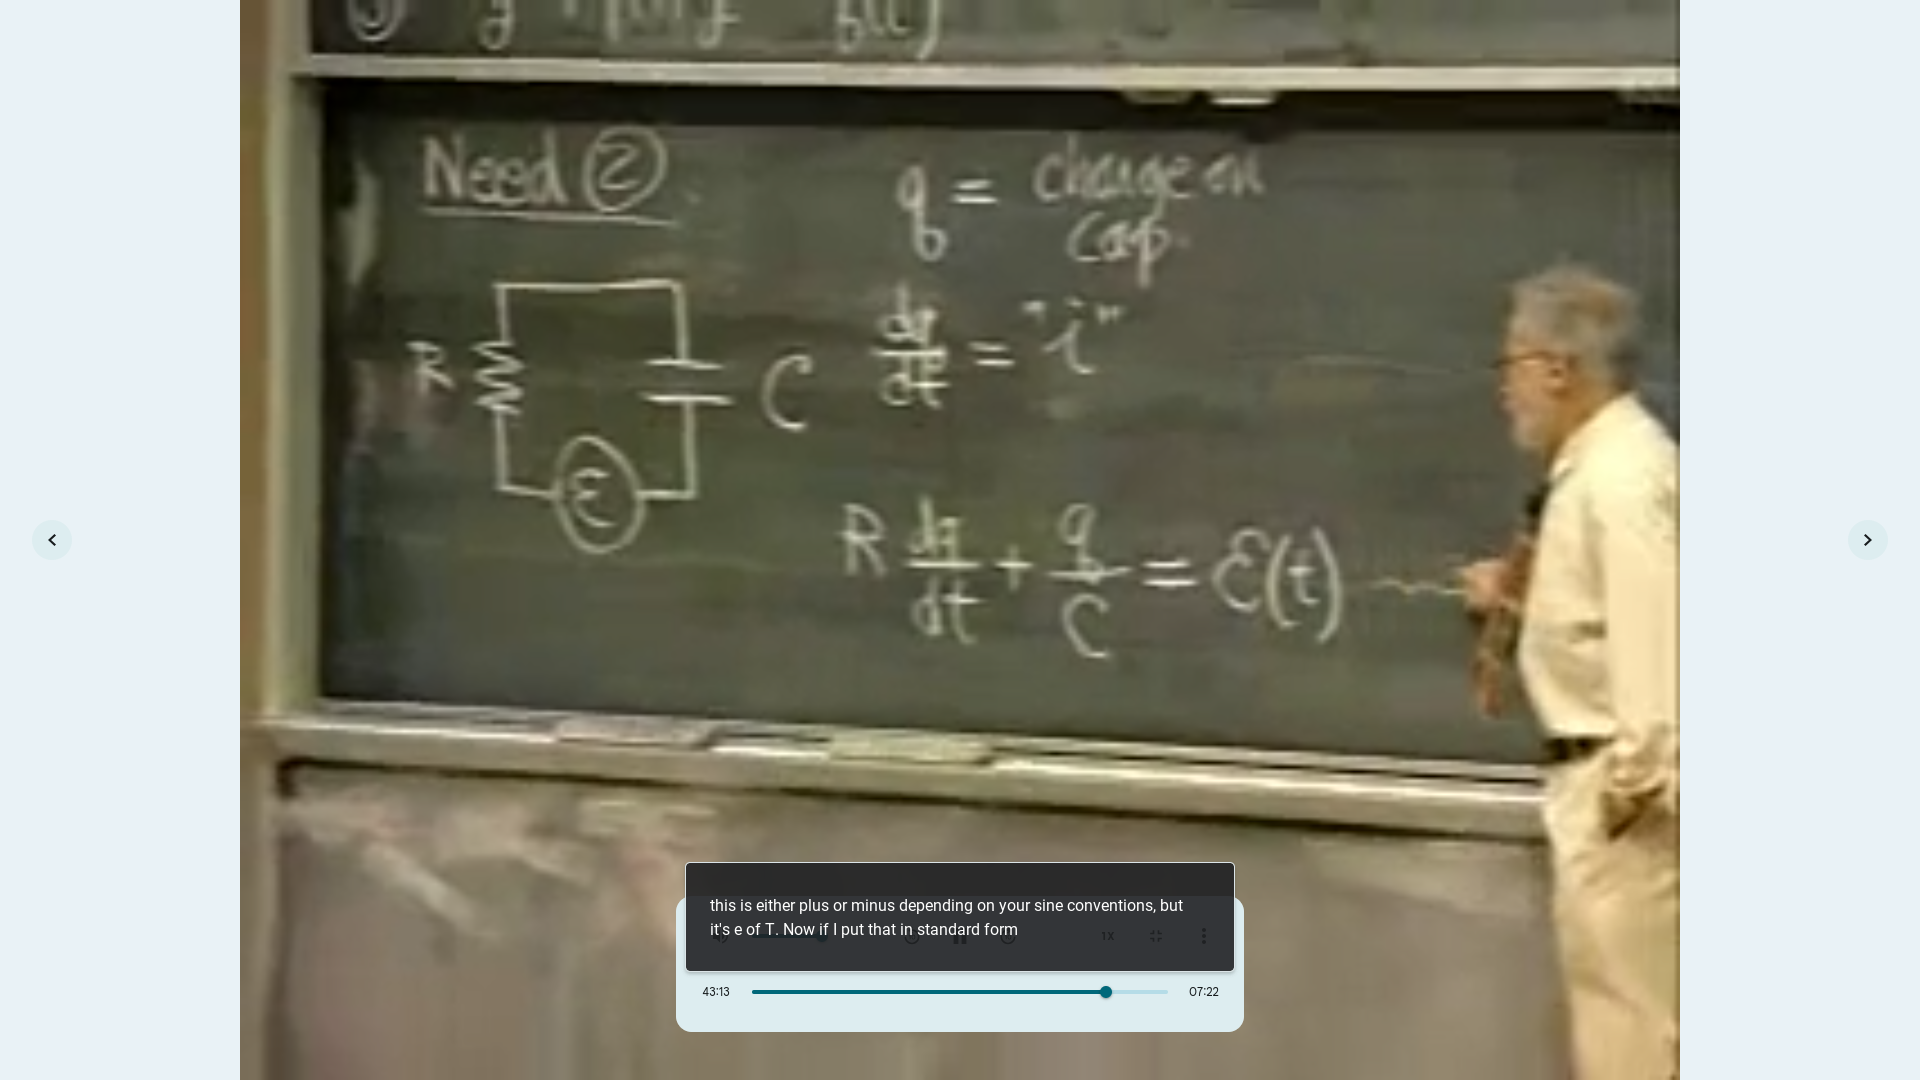 Need ②
q = charge on
cap.
dq/dt = "i"
R
C
ε
R dq/dt + q/C = ε(t)
this is either plus or minus depending on your sine conventions, but
it's e of T. Now if I put that in standard form
1X
43:13
07:22